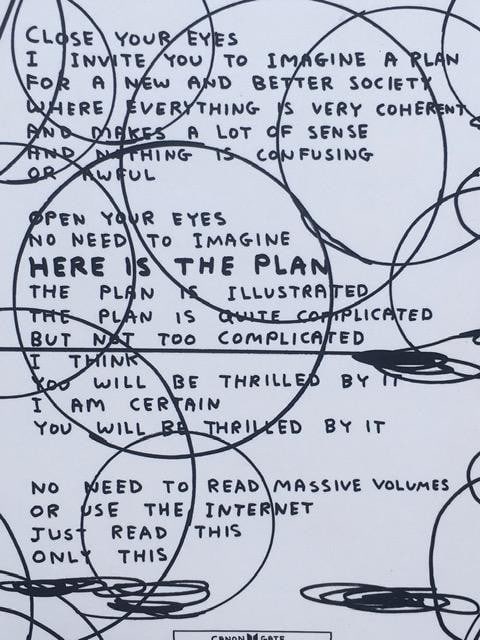 CLOSE YOUR EYES
I INVITE YOU TO IMAGINE A PLAN
FOR A NEW AND BETTER SOCIETY
WHERE EVERYTHING IS VERY COHERENT
AND MAKES A LOT OF SENSE
AND NOTHING IS CONFUSING
OR AWFUL
OPEN YOUR EYES
NO NEED TO IMAGINE
HERE IS THE PLAN
THE PLAN IS ILLUSTRATED
THE PLAN IS QUITE COMPLICATED
BUT NOT TOO COMPLICATED
I THINK
YOU WILL BE THRILLED BY IT
I AM CERTAIN
YOU WILL BE THRILLED BY IT
NO NEED TO READ MASSIVE VOLUMES
OR USE THE INTERNET
JUST READ THIS
ONLY THIS
CANON GATE